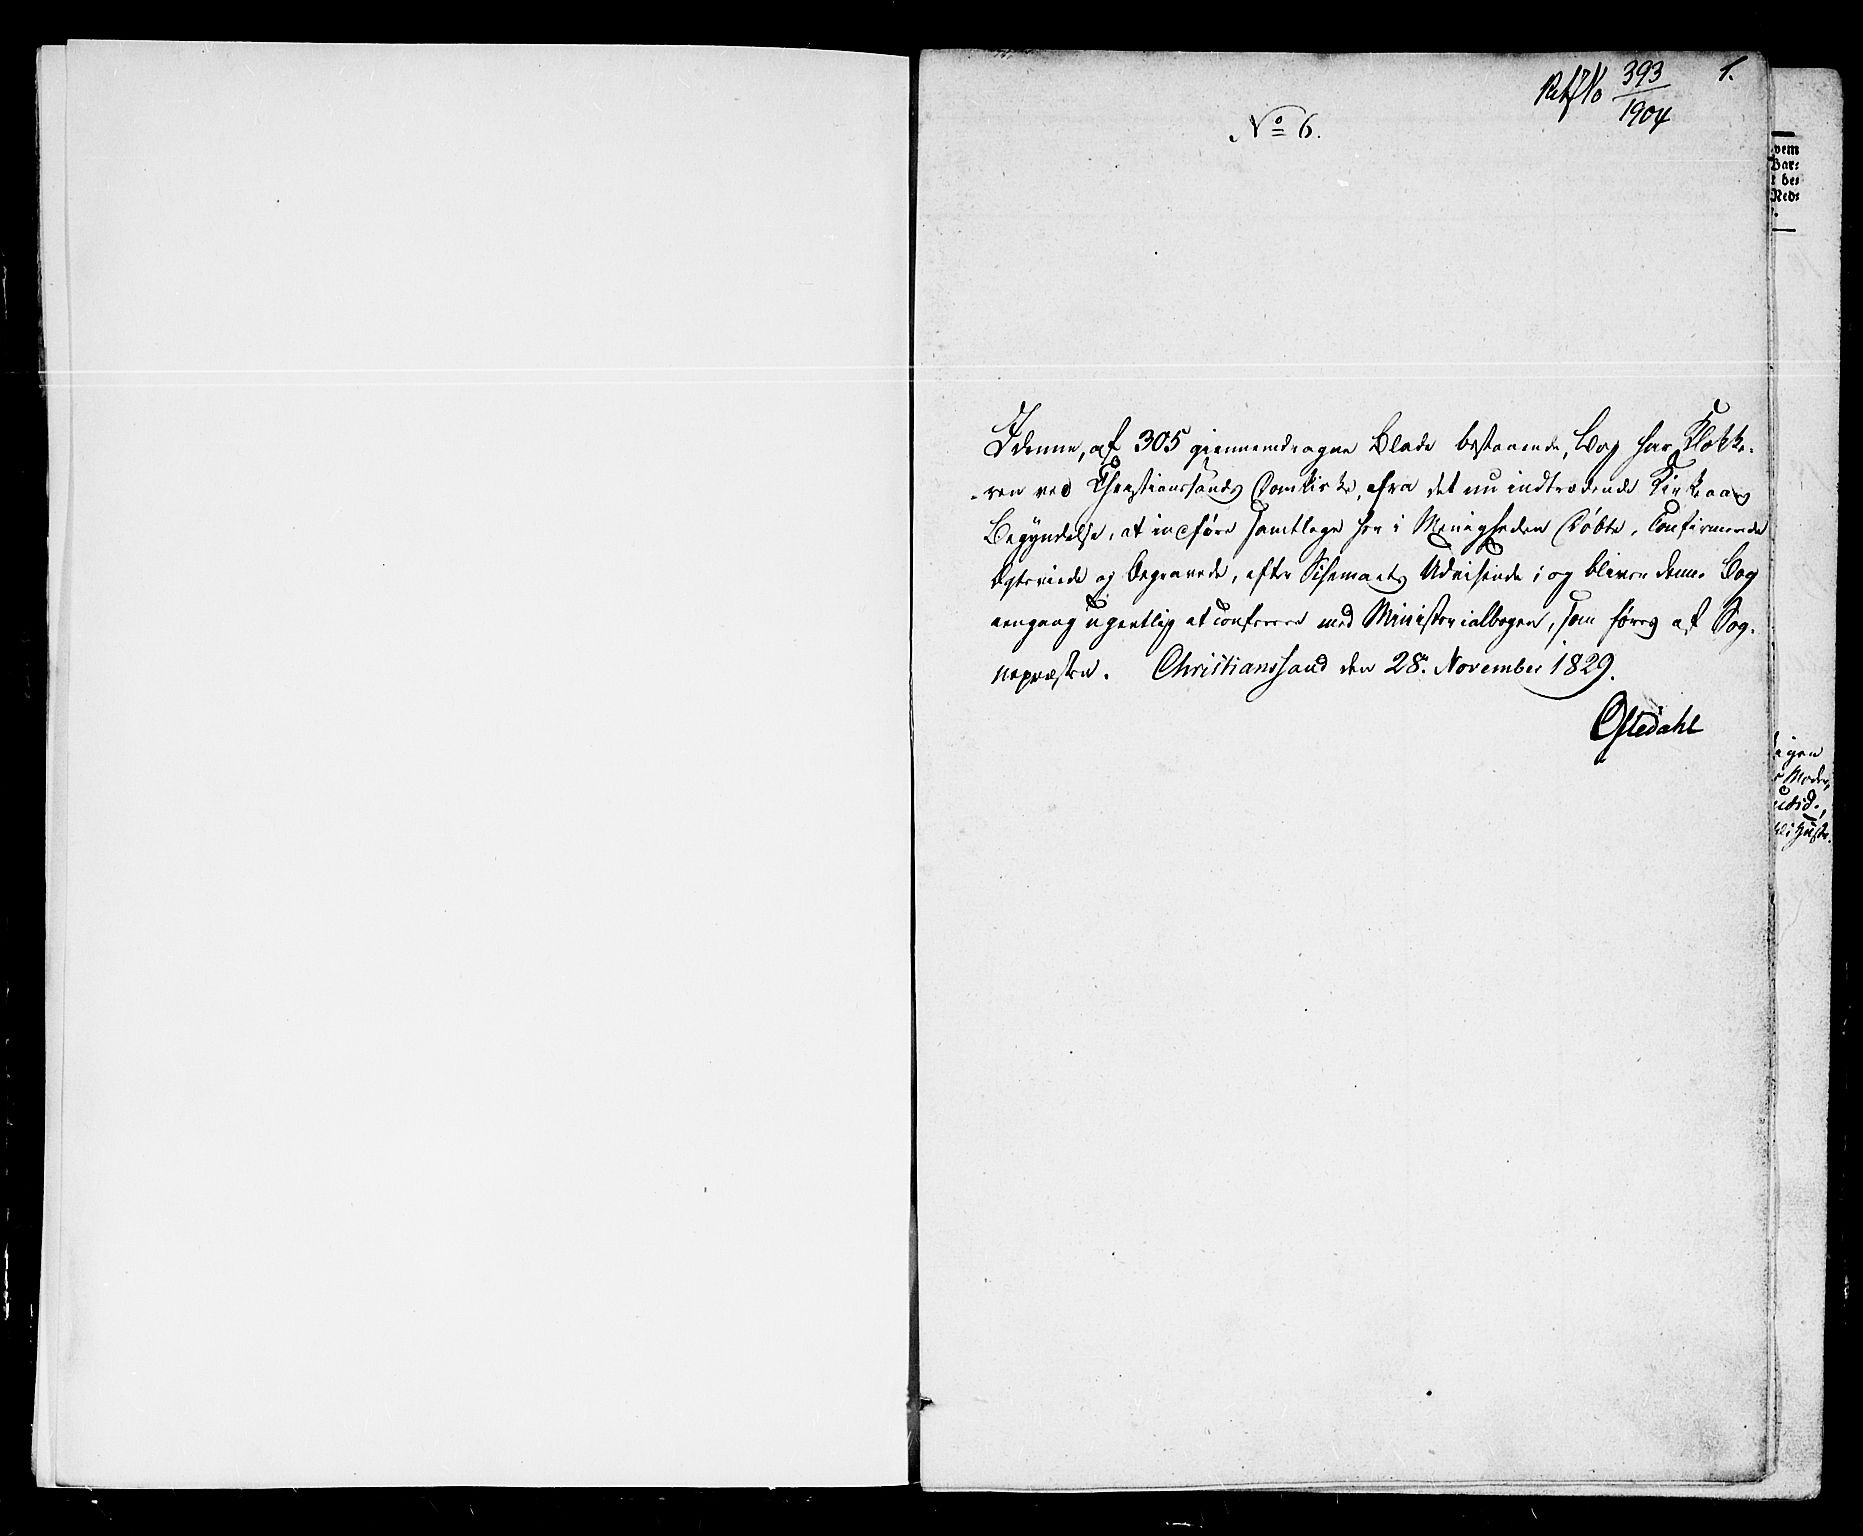 No 6.
393
1904
1.
I denne, af 305 giennemdragne Blade bestaaende, Bog har Klokke-
-ren ved Christianssands Domkirke, fra det nu indtrædende Kirkeaars
Begyndelse, at indføre samtlige her i Menigheden Døbte, Confirmerede
Ægteviede og Begravede, efter Schemaets Udvisende; og bliver denne Bog
eengang ugentlig at conferere med Ministerialbogen, som føres af Sog-
nepræsten. Christianssand den 28. November 1829.
Oftedahl
vem
Bar-
des
Ned-